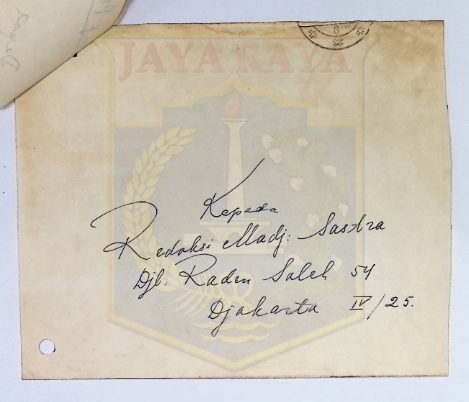 JAYA RAYA
Kepada
Redaksi Madj: Sastra
Djl. Raden Saleh 54
Djakarta IV/25.